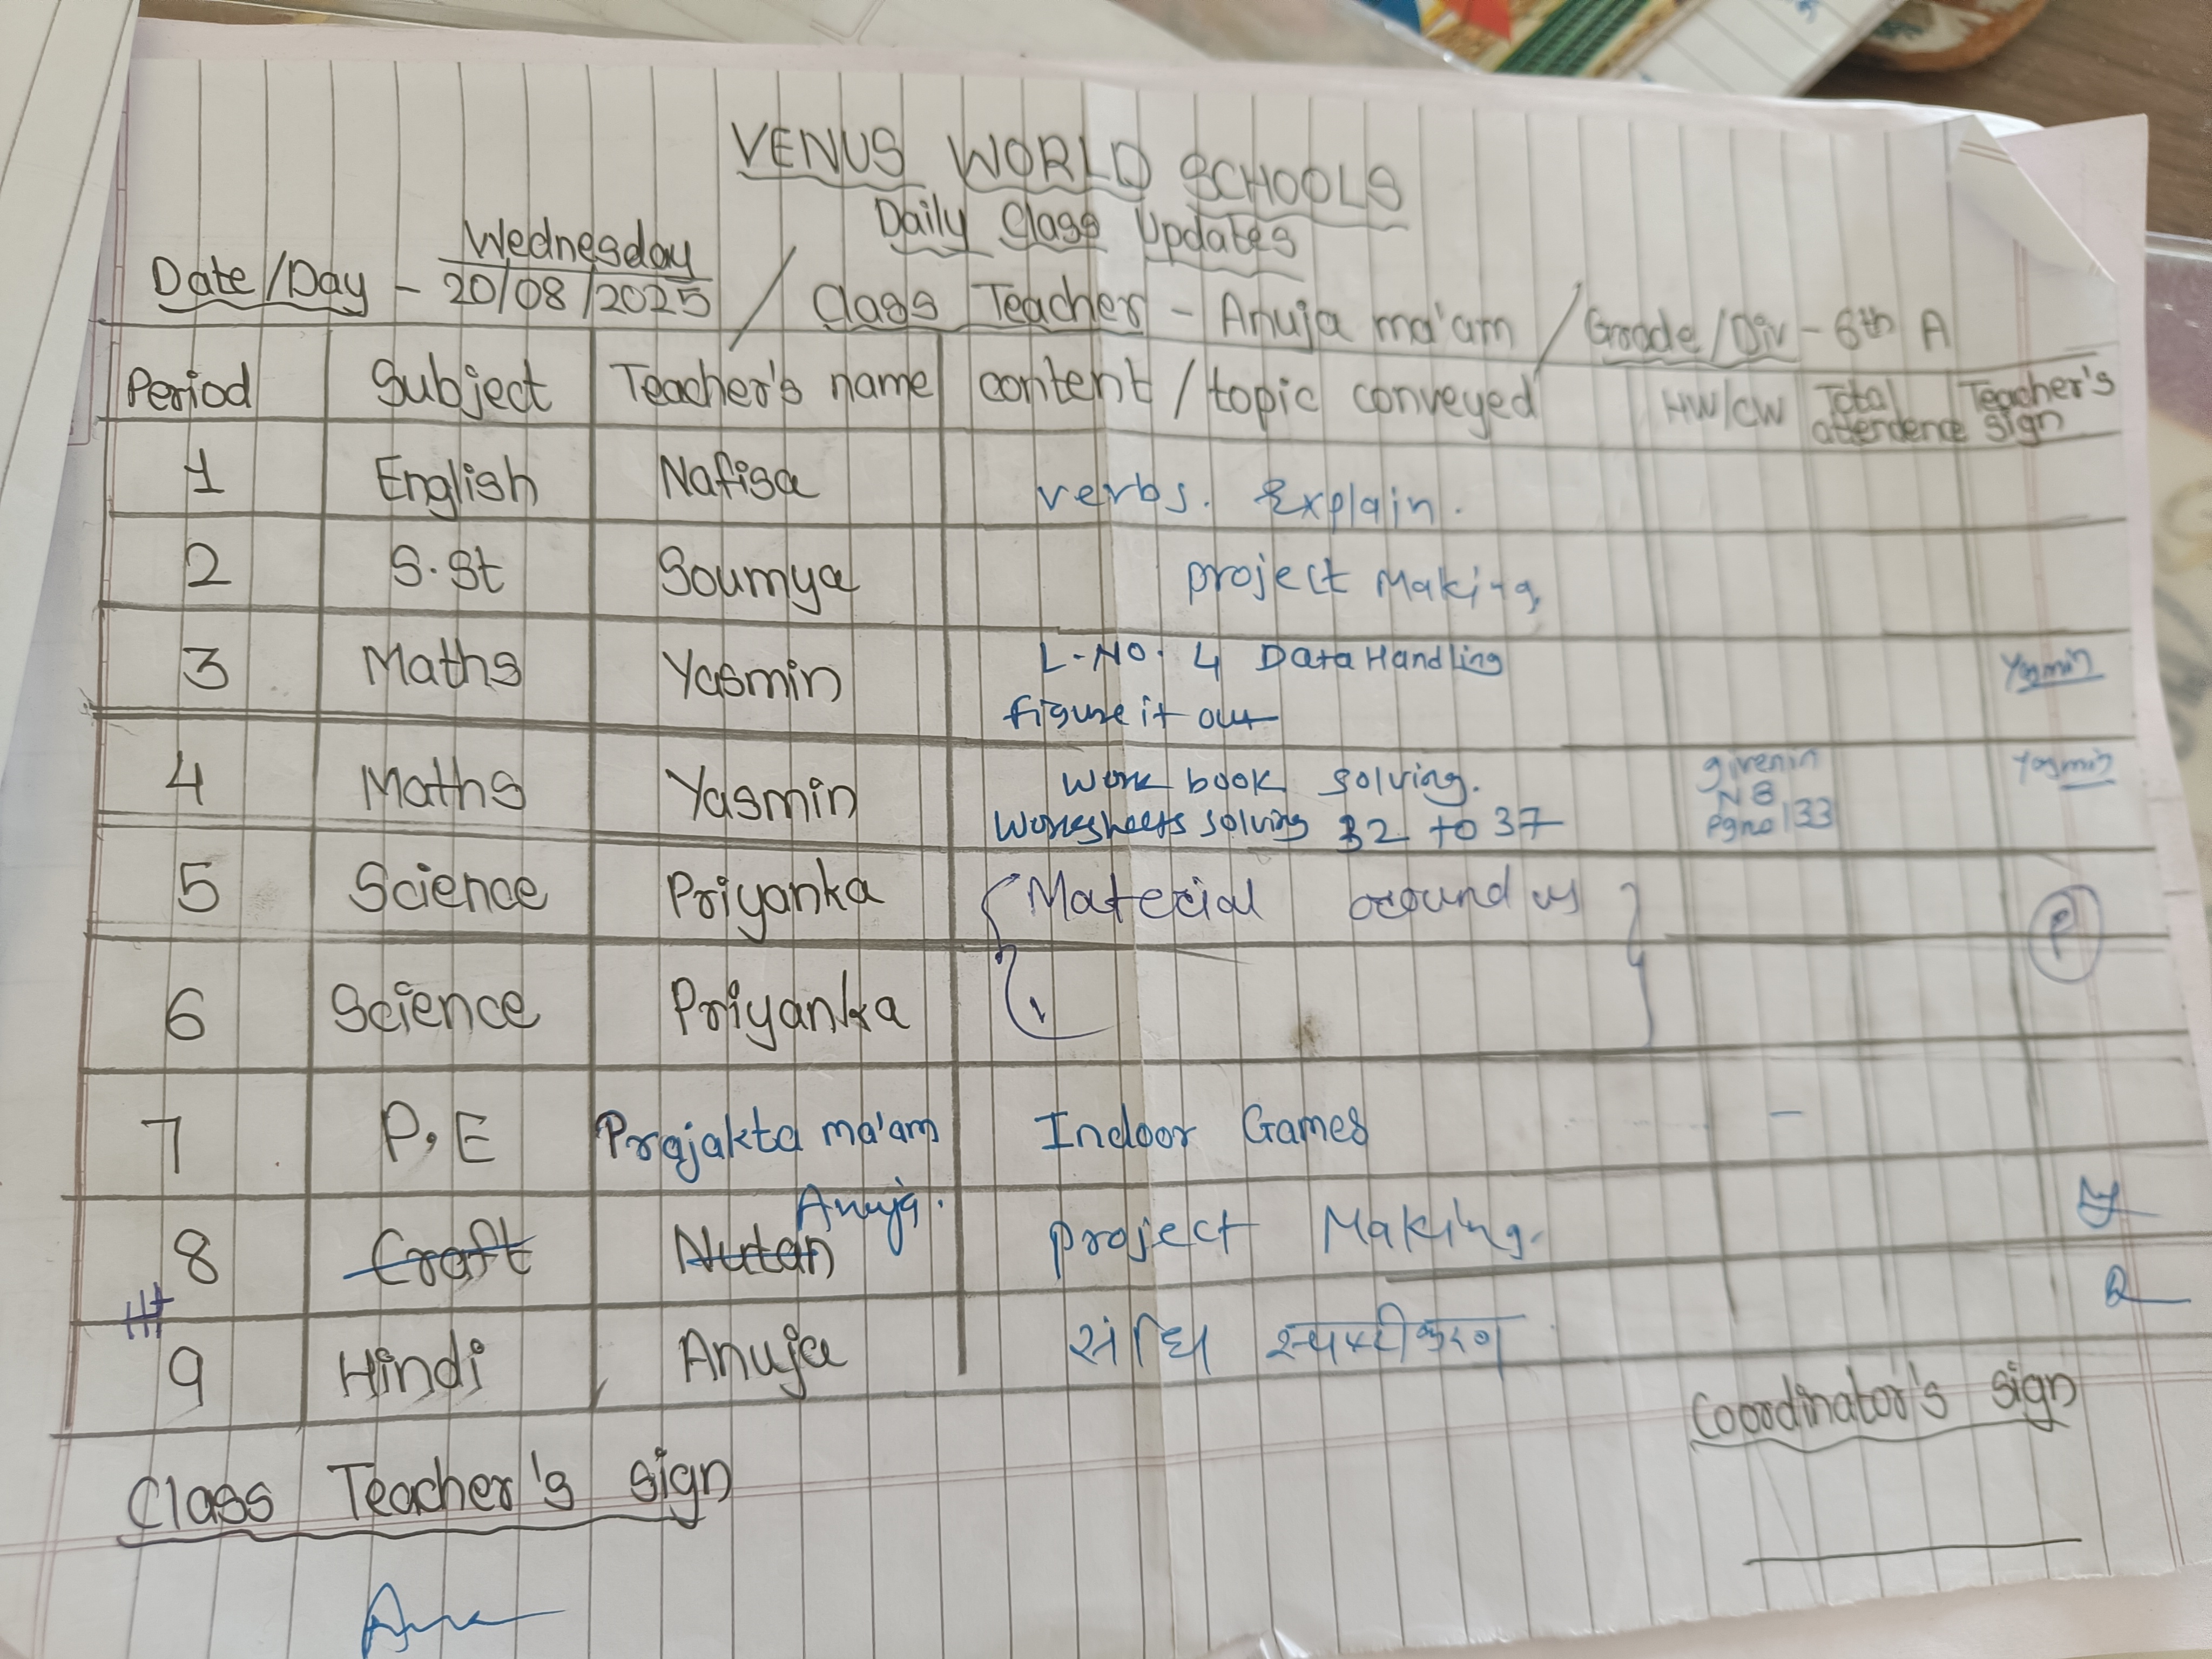 VENUS WORLD SCHOOLS
Daily Class Updates
Date/Day - Wednesday 20/08/2025 / Class Teacher - Anuja ma'am / Grade/Div - 6th A
Period Subject Teacher's name content / topic conveyed HW/CW Total attendence Teacher's sign
1 English Nafisa verbs. Explain.
2 S.St Soumya project Making
3 Maths Yasmin L-NO. 4 Data Handling Yasmin
figure it out
4 Maths Yasmin Work book solving. givenin NB Pgno 133 Yasmin
Worksheets solving 32 to 37
5 Science Priyanka Material around us P
6 Science Priyanka
7 P.E Prajakta ma'am Indoor Games -
Anuja.
8 Craft Nutan project Making.
9 Hindi Anuja संधि स्पष्टीकरण
Coordinator's sign
Class Teacher's sign